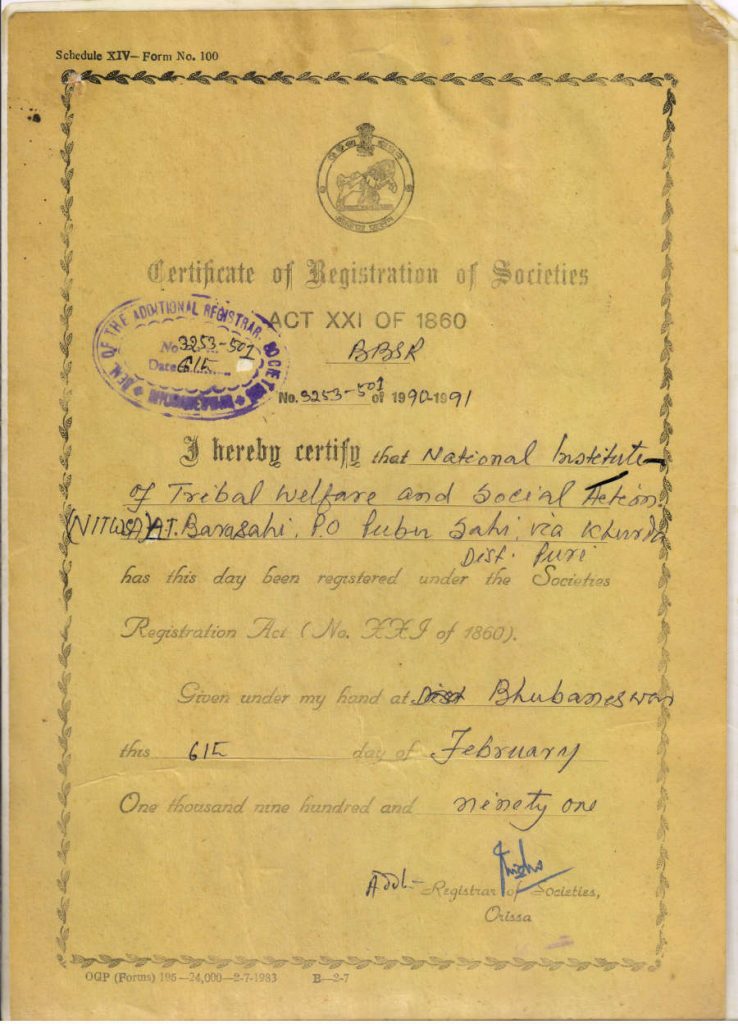 Schedule XIV—Form No. 100
Certificate of Registration of Societies
ACT XXI OF 1860
SEAL OF THE ADDITIONAL REGISTRAR SOCIETIES
No 3253-501
Date 6th
BHUBANESWAR
BBSR
No. 3253-501 of 1990-1991
I hereby certify that National Institute
of Tribal Welfare and Social Action.
(NITWSA) AT. Barasahi, P.O Pubu Sahi, via Khurda
Dist. Puri
has this day been registered under the Societies
Registration Act (No. XXI of 1860).
Given under my hand at Bhubaneswar
this 6th day of February
One thousand nine hundred and ninety one
Addl- Registrar of Societies,
Orissa
OGP (Forms) 195—24,000—2-7-1983 B—2-7